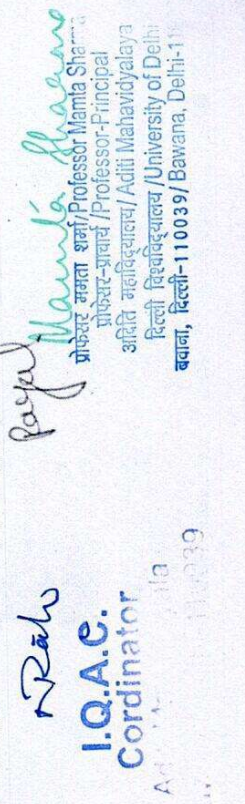 I.Q.A.C.
Cordinator
110039
Payal
Mamta Sharma
प्रोफेसर ममता शर्मा/Professor Mamta Sharma
प्रोफेसर-प्राचार्य/Professor-Principal
अदिति महाविद्यालय/Aditi Mahavidyalaya
दिल्ली विश्वविद्यालय/University of Delhi
बवाना, दिल्ली-110039/Bawana, Delhi-11